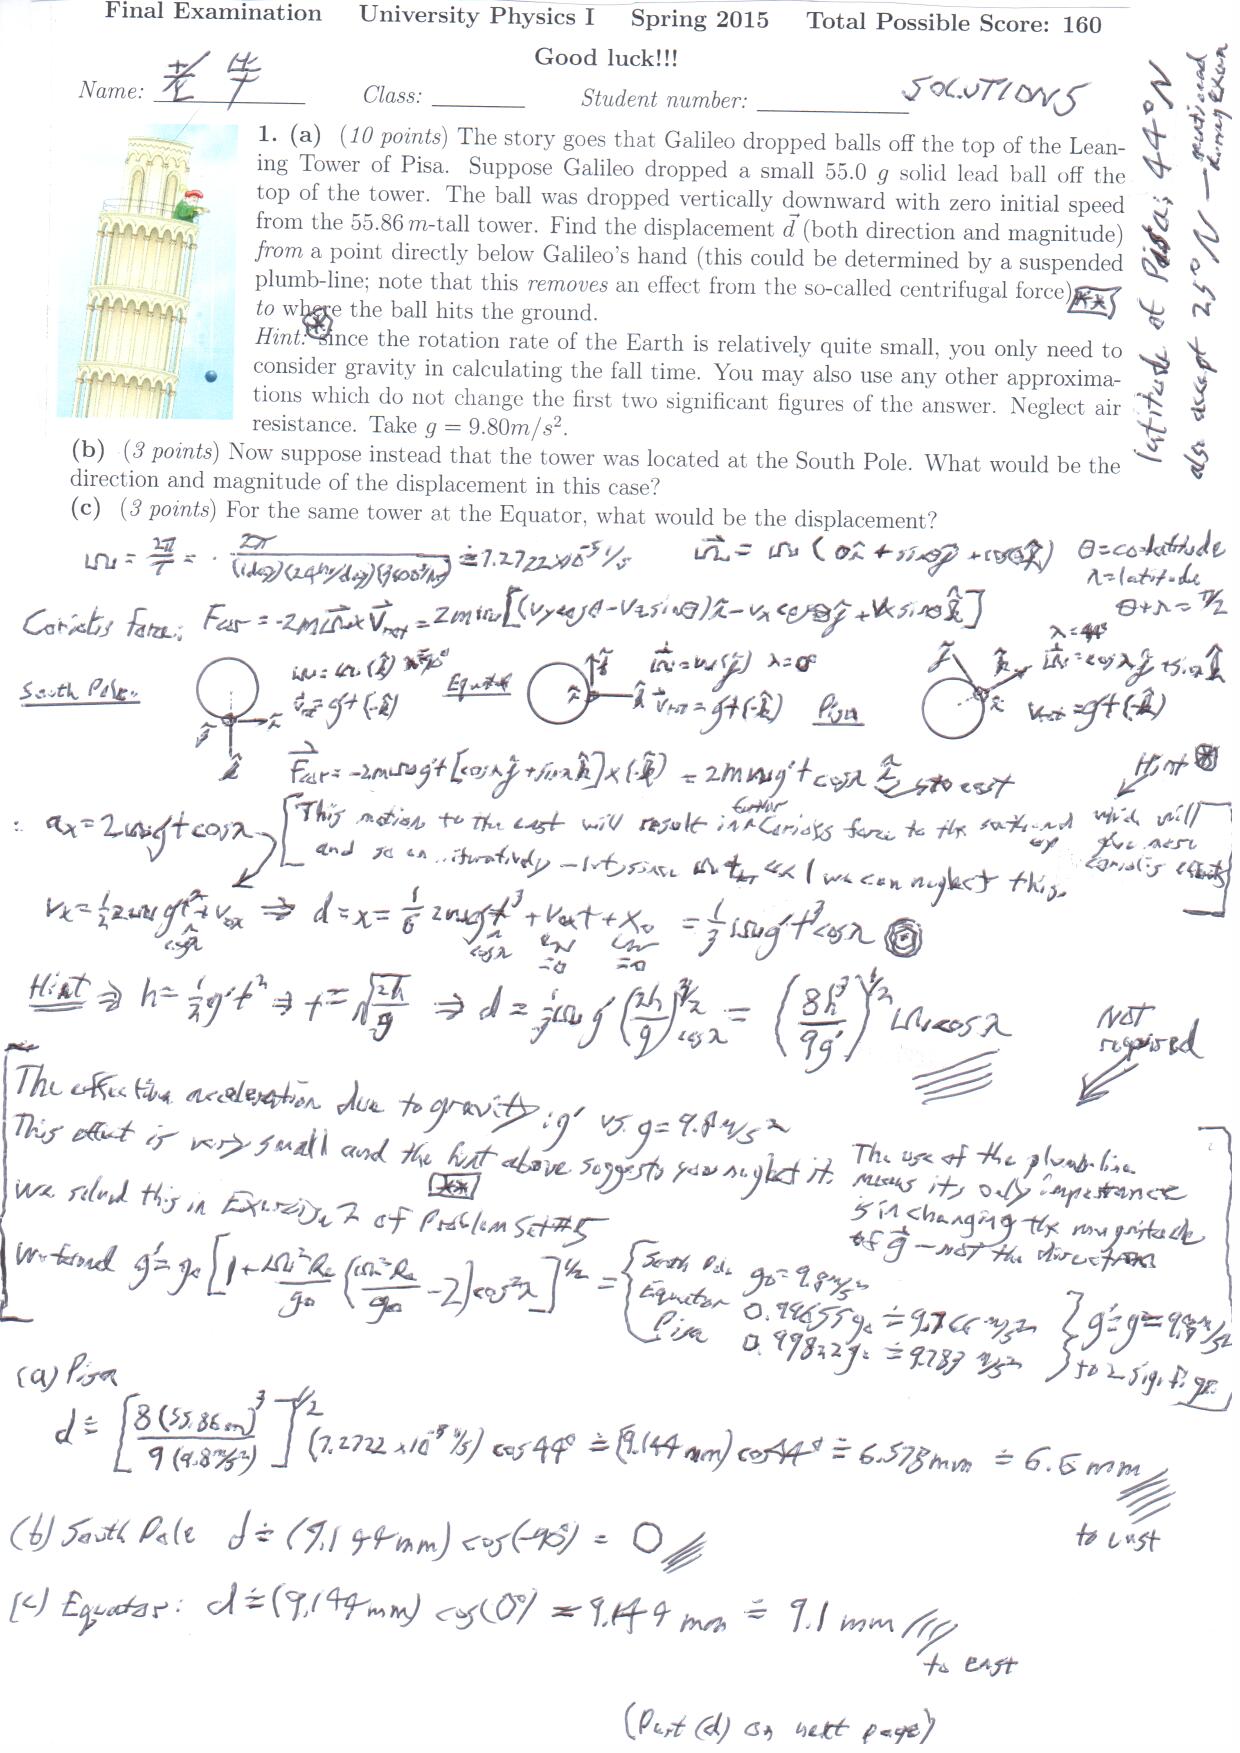 Final Examination University Physics I Spring 2015 Total Possible Score: 160
Good luck!!!
Name: Class: Student number: SOLUTIONS
1. (a) (10 points) The story goes that Galileo dropped balls off the top of the Lean-
ing Tower of Pisa. Suppose Galileo dropped a small 55.0 g solid lead ball off the
top of the tower. The ball was dropped vertically downward with zero initial speed
from the 55.86 m-tall tower. Find the displacement d⃗ (both direction and magnitude)
from a point directly below Galileo's hand (this could be determined by a suspended
plumb-line; note that this removes an effect from the so-called centrifugal force) **
to where the ball hits the ground.
Hint: Since the rotation rate of the Earth is relatively quite small, you only need to
consider gravity in calculating the fall time. You may also use any other approxima-
tions which do not change the first two significant figures of the answer. Neglect air
resistance. Take g = 9.80m/s².
(b) (3 points) Now suppose instead that the tower was located at the South Pole. What would be the
direction and magnitude of the displacement in this case?
(c) (3 points) For the same tower at the Equator, what would be the displacement?
latitude of Pisa; 44°N
also accept 25°N — mentioned during exam
ω = 2π/T = 2π/((1day)(24hr/day)(3600s/hr)) ≐ 7.2722×10⁻⁵ 1/s ω⃗ = ω (0x̂ + sinθŷ + cosθk̂) θ = co-latitude
λ = latitude
θ + λ = π/2
Coriolis force: Fcor = -2mω⃗×v⃗rot = 2mω[(vy cosθ - vz sinθ)x̂ - vx cosθŷ + vx sinθk̂]
λ = 44°
South Pole ω⃗ = ω(k̂) Equator ω⃗ = ω(ŷ) λ = 0° ω⃗ = cosλŷ + sinλk̂
v⃗rot = gt(-k̂) v⃗rot = gt(-k̂) Pisa v⃗rot = gt(-k̂)
F⃗cor = -2mωg't[cosλŷ + sinλk̂]×(-k̂) = 2mωg't cosλ x̂ to east Hint *
∴ ax = 2ωg't cosλ [This motion to the east will result in a further Coriolis force to the south and up which will give more coriolis effects
and so on iteratively – but since ωt ≪ 1 we can neglect this.]
vx = ½2ωg't² cosλ + vox ⇒ d = x = 1/6 2ωg't³ cosλ + voxt + xo = 1/3 ωg't³ cosλ
=0 =0
Hint ⇒ h = ½g't² ⇒ t = √(2h/g) ⇒ d = 1/3 ωg'(2h/g)^3/2 cosλ = (8h³/9g')^1/2 ω cosλ
Not required
The effective acceleration due to gravity: g' vs. g = 9.8 m/s²
This effect is very small and the hint above suggests you neglect it.
**
We solved this in Exercise 7 of Problem Set #5
The use of the plumb-line
means its only importance
is in changing the magnitude
of g⃗ – not the direction
We found g' = g₀[1 + ω²Re/g₀ (ω²Re/g₀ - 2)cos²λ]^1/2 = { South Pole g₀ = 9.8 m/s²
Equator 0.99655g₀ ≐ 9.766 m/s²
Pisa 0.99822g₀ ≐ 9.783 m/s² } g' ≐ g = 9.8 m/s²
to 2 sig. figs.
(a) Pisa
d ≐ [8(55.86m)³/9(9.8m/s²)]^1/2 (7.2722×10⁻⁵ 1/s) cos44° ≐ (9.144 mm) cos44° ≐ 6.578 mm ≐ 6.6 mm
to east
(b) South Pole d ≐ (9.144 mm) cos(-90°) = 0
(c) Equator: d ≐ (9.144 mm) cos(0°) = 9.144 mm ≐ 9.1 mm
to east
(Part (d) on next page)